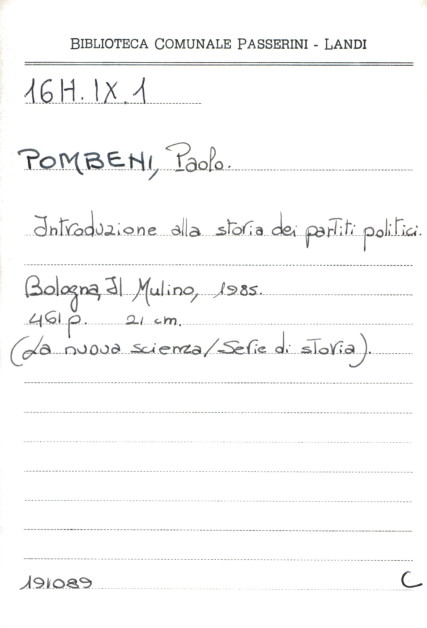 BIBLIOTECA COMUNALE PASSERINI - LANDI
16H.IX.1
POMBENI, Paolo.
Introduzione alla storia dei partiti politici.
Bologna, Il Mulino, 1985.
461 p. 21 cm.
(La nuova scienza/Serie di storia).
191089 C